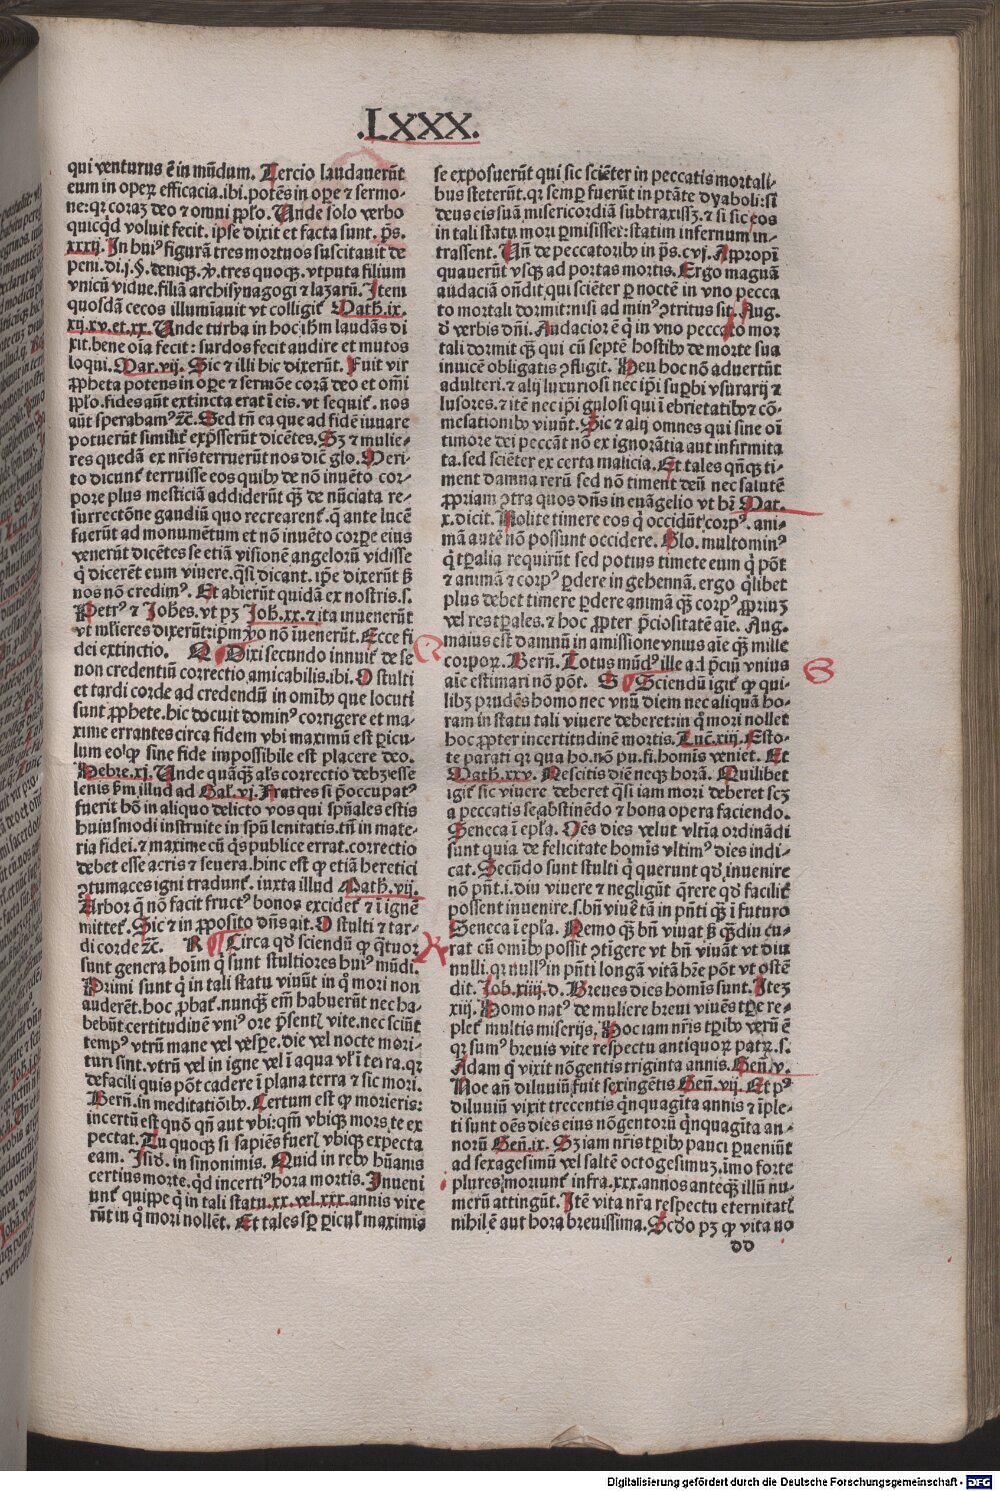 .LXXX.
qui venturus ē in mūdum. Tercio laudauerūt
eum in oper̄ efficacia.ibi.potēs in oꝑe ⁊ sermo-
ne: qꝛ coraʒ deo ⁊ omni ꝓplo. Unde solo verbo
quicqͥd voluit fecit. ipse dixit et facta sunt. p̄s.
xxxij. In huiꝰ figurā tres mortuos suscitauit de
peni. di.j.§. deniqꝫ. ꝟ. tres quoqꝫ. vtputa filium
vnicū vidue. filiā archisynagogi ⁊ lazarū. Item
quosdā cecos illumīauit vt colligit᷑ Math.ix.
xij.xv.et.xx. Unde turba in hoc ibm̄ laudās di
xit. bene oīa fecit : surdos fecit audire et mutos
loqui. Mar.vij. Sic ⁊ illi hic dixerūt. Fuit vir
ꝓpheta potens in oꝑe ⁊ sermōe corā deo et om̄i
ꝓplo. fides aūt extincta erat ī eis. vt sequit᷑. nos
aūt sperabamꝰ ⁊c̄. Sed tn̄ ea que ad fidē iuuare
potuerūt similit᷑ exp̄sserūt dicētes. Sꝫ ⁊ mulie-
res quedā ex nr̄is terruerūt nos dic̄ glo. Meri-
to dicunt᷑ terruisse eos quibꝰ de nō inuēto cor-
pore plus mesticiā addiderūt qꝫ de nūciata re-
surrectōne gaudiū quo recrearent᷑. q̄ ante lucē
fuerūt ad monumētum et nō inuēto corꝑe eius
venerūt dicētes se etiā visionē angeloꝝ vidisse
qͥ dicerēt eum viuere. q̄si dicant. ip̄e dixerūt sꝫ
nos nō credimꝰ. Et abierūt quidā ex nostris. s.
Petrꝰ ⁊ Joh̄es. vt pꝫ Joh.xx. ⁊ ita inuenerūt
vt mlieres dixerūt: ip̄m ꝟo nō īuenerūt. Ecce fi
dei extinctio. Q Dixi secundo innuit᷑ de se
non credentiū correctio amicabilis. ibi. O stulti
et tardi corde ad credendū in omībꝰ que locuti
sunt ꝓphete. hic docuit dominꝰ corrigere et ma-
xime errantes circa fidem vbi maximū est ꝑicu-
lum eo ꝙ sine fide impossibile est placere deo.
Hebre.xj. Unde quāqꝫ al̄s correctio debꝫ esse
lenis s̄m illud ad Gal᷑.vj. Fratres si p̄occupatꝰ
fuerit hō in aliquo delicto vos qui spūales estis
huiusmodi instruite in spū lenitatis. tn̄ in mate-
ria fidei. ⁊ maxime cū qͥs publice errat. correctio
debet esse acris ⁊ seuera. hinc est ꝙ etiā heretici
ꝯtumaces igni tradunt᷑. iuxta illud Math.vij.
Arbor q̄ nō facit fructꝰ bonos excidet᷑ ⁊ ī ignē
mittet᷑. Sic ⁊ in ꝓposito dn̄s ait. O stulti ⁊ tar-
di corde ⁊c̄. R Circa qd̄ sciendū ꝙ q̄tuor
sunt genera hoīm q̄ sunt stultiores huiꝰ mūdi.
Primi sunt qͥ in tali statu viuūt in qͦ mori non
auderēt. hoc ꝓbat᷑. nunqꝫ em̄ habuerūt nec ha-
bebūt certitudinē vniꝰ ore p̄sentis vite. nec sciūt
tempꝰ vtrū mane vel vesꝑe. die vel nocte mori-
turi sint. vtrū vel in igne vel ī aqua vl᷑ ī ter̄a. qꝛ
defacili quis pōt cadere ī plana terra ⁊ sic mori.
Bern̄. in meditatiōibꝰ. Certum est ꝙ morieris:
incertū est quō qn̄ aut vbi: qm̄ vbiqꝫ mors te ex
pectat. Tu quoqꝫ si sapiēs fueris vbiqꝫ expecta
eam. Isid̄. in sinonimis. Quid in rebꝰ hūanis
certius morte. qͥd incertiꝰ hora mortis. Inueni
unt᷑ quippe qͥ in tali statu.xx.vel.xxx.annis vixe
rūt in qͦ mori nollēt. Et tales sꝑ ꝑicul᷑ maximis
se exposuerūt qui sic sciēter in peccatis mortali-
bus steterūt. qꝛ semꝑ fuerūt in ptāte dyaboli: si
deus eis suā misericordiā subtraxissꝫ. ⁊ si sic eos
in tali statu mori ꝑmisisset: statim infernum in-
trassent. Un̄ de peccatoribꝰ in p̄s.cvj. Appropī
quauerūt vsqꝫ ad portas mortis. Ergo magnā
audaciā on̄dit qui sciēter ꝑ noctē in vno pecca
to mortali dormit: nisi ad minꝰ ꝯtritus sit. Aug.
d̄ verbis dn̄i. Audacior ē qͥ in vno peccato mor
tali dormit qꝫ qui cū septē hostibꝰ de morte sua
inuicē obligatis ꝯfligit. Heu hoc nō aduertūt
adulteri. ⁊ alij luxuriosi nec ip̄i suꝑbi vsurarij ⁊
lusores. ⁊ itē nec ip̄i gulosi qui ī ebrietatibꝰ ⁊ cō-
mesationibꝰ viuūt. Sic ⁊ alij omnes qui sine oī
timore dei peccāt nō ex ignorātia aut infirmita
ta. sed sciēter ex certa malicia. Et tales qn̄qꝫ ti-
ment damna rerū sed nō timent deū nec salutē
ꝓpriam ꝯtra quos dn̄s in euāgelio vt hꝫ Mat.
x. dicit. Nolite timere eos qͥ occidūt corpꝰ. ani-
mā autē nō possunt occidere. Glo. multominꝰ
qͥ tꝑalia requirūt sed potius timete eum qͥ pōt
⁊ animā ⁊ corpꝰ ꝑdere in gehennā. ergo qͥlibet
plus debet timere ꝑdere animā qꝫ corpꝰ ꝓpriuʒ
vel res tꝑales. ⁊ hoc ꝓpter p̄ciositatē aīe. Aug.
maius est damnū in amissione vnius aīe qꝫ mille
corpoꝝ. Bern̄. Totus mūdꝰ ille ad p̄ciū vnius
aīe estimari nō pōt. S Sciendū igit᷑ ꝙ qui-
libꝫ prudēs homo nec vnū diem nec aliquā ho-
ram in statu tali viuere deberet: in qͦ mori nollet
hoc ꝓpter incertitudinē mortis. Luc̄.xiij. Esto-
te parati qꝛ qua ho. nō pu. fi. homīs veniet. Et
Math.xxv. Nescitis diē neqꝫ horā. Quilibet
igit᷑ sic viuere deberet q̄si iam mori deberet scꝫ
a peccatis se abstinēdo ⁊ bona opera faciendo.
Seneca ī epl̄a. Oēs dies velut vltīa ordinādi
sunt quia de felicitate homīs vltimꝰ dies indi-
cat. Secūdo sunt stulti qͥ querunt qd̄ inuenire
nō pn̄t. i. diu viuere ⁊ negligūt q̄rere qd̄ facilit᷑
possent inuenire. s. bn̄ viuē tā in pn̄ti qꝫ ī futuro
Seneca ī epl̄a. Nemo qꝫ bn̄ viuat sꝫ qꝫdiu cu-
rat cū omībꝰ possit ꝯtigere vt bn̄ viuāt vt diu
nulli. qꝛ nullꝰ in pn̄ti longā vitā hr̄e pōt vt ostē
dit. Job.xiiij.d. Breues dies homīs sunt. Iteʒ
xiij. Homo natꝰ de muliere breui viuēs tꝑe re-
plet᷑ multis miserijs. Hoc iam nr̄is tꝑibꝰ verū ē
qꝛ sumꝰ breuis vite respectu antiquoꝝ patꝝ. s.
Adam qͥ vixit nōgentis triginta annis. Gen̄.v.
Noe an̄ diluuiū fuit sexingētis Gen̄.vij. Et pꝰ
diluuiū vixit trecentis qͥnquagīta annis ⁊ īple-
ti sunt oēs dies eius nōgentorū qͥnquagīta an-
norū Gen̄.ix. Sꝫ iam nr̄is tꝑibꝰ pauci ꝑueniūt
ad sexagesimū vel saltē octogesimuʒ. īmo forte
plures moriunt᷑ infra.xxx.annos anteqꝫ illū nu-
merū attingūt. Itē vita nr̄a respectu eternitatis
nihil ē aut hora breuissima. Scd̄o pꝫ ꝙ vita no
dd
R
S
Digitalisierung gefördert durch die Deutsche Forschungsgemeinschaft - DFG